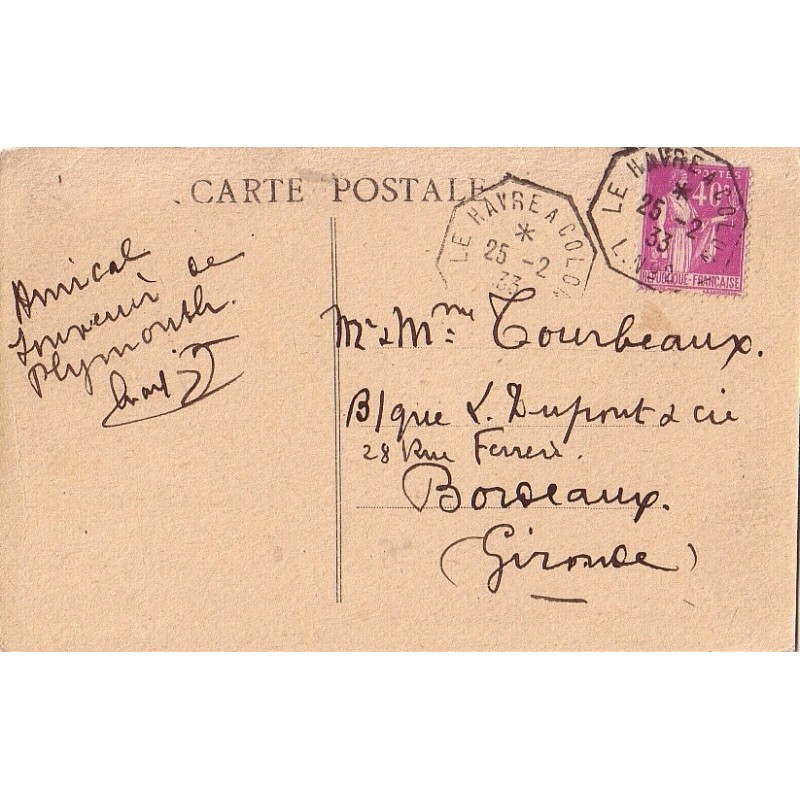 CARTE POSTALE
LE HAVRE A COLON
25 -2
33
LE HAVRE A COLON
25 -2
33
L.N
POSTES
40c
REPUBLIQUE-FRANÇAISE
Amical
souvenir de
Plymouth.
Mr & Mme Tourbeaux.
B/que L. Dupont & cie
28 Rue Ferrere.
Bordeaux.
(Gironde)